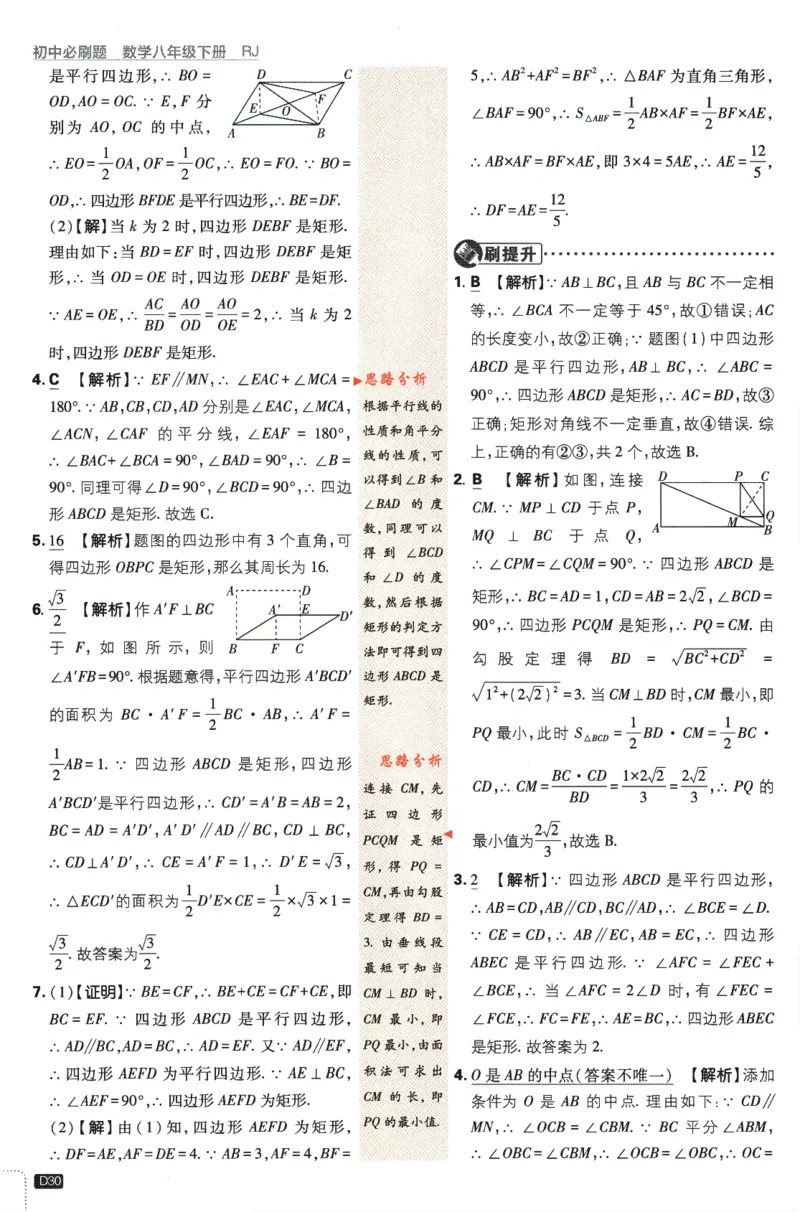 初中必刷题 数学八年级下册 RJ
是平行四边形,∴ BO =
OD,AO = OC. ∵ E,F 分
别为 AO, OC 的中点,
D C E O F A B
∴ EO=1/2 OA,OF=1/2 OC,∴ EO=FO. ∵ BO=
OD,∴ 四边形 BFDE 是平行四边形,∴ BE=DF.
(2)【解】当 k 为 2 时,四边形 DEBF 是矩形.
理由如下:当 BD=EF 时,四边形 DEBF 是矩
形,∴ 当 OD=OE 时,四边形 DEBF 是矩形.
∵ AE=OE,∴ AC/BD=AO/OD=AO/OE=2,∴ 当 k 为 2
时,四边形 DEBF 是矩形.
4.C 【解析】∵ EF∥MN,∴ ∠EAC+∠MCA=
180°.∵ AB,CB,CD,AD 分别是∠EAC,∠MCA,
∠ACN, ∠CAF 的平分线, ∠EAF = 180°,
∴ ∠BAC+∠BCA=90°,∠BAD=90°,∴ ∠B=
90°. 同理可得∠D=90°,∠BCD=90°,∴ 四边
形 ABCD 是矩形. 故选 C.
5.16 【解析】题图的四边形中有 3 个直角,可
得四边形 OBPC 是矩形,那么其周长为 16.
6.√3/2 【解析】作 A′F⊥BC
于 F, 如图所示, 则
A D A′ E D′ B F C
∠A′FB=90°.根据题意得,平行四边形 A′BCD′
的面积为 BC·A′F=1/2 BC·AB,∴ A′F=
1/2 AB=1. ∵ 四边形 ABCD 是矩形,四边形
A′BCD′是平行四边形,∴ CD′=A′B=AB=2,
BC=AD=A′D′,A′D′∥AD∥BC,CD⊥BC,
∴ CD⊥A′D′,∴ CE=A′F=1,∴ D′E=√3,
∴ △ECD′的面积为1/2 D′E×CE=1/2×√3×1=
√3/2. 故答案为√3/2.
7.(1)【证明】∵ BE=CF,∴ BE+CE=CF+CE,即
BC=EF. ∵ 四边形 ABCD 是平行四边形,
∴ AD∥BC,AD=BC,∴ AD=EF. 又∵ AD∥EF,
∴ 四边形 AEFD 为平行四边形. ∵ AE⊥BC,
∴ ∠AEF=90°,∴ 四边形 AEFD 为矩形.
(2)【解】由(1)知,四边形 AEFD 为矩形,
∴ DF=AE,AF=DE=4. ∵ AB=3,AF=4,BF=
思路分析
根据平行线的
性质和角平分
线的性质,可
以得到∠B 和
∠BAD 的度
数,同理可以
得到 ∠BCD
和 ∠D 的度
数,然后根据
矩形的判定方
法即可得到四
边形 ABCD 是
矩形.
思路分析
连接 CM,先
证四边形
PCQM 是矩
形,得 PQ=
CM,再由勾股
定理得 BD=
3. 由垂线段
最短可知当
CM⊥BD 时,
CM 最小,即
PQ 最小,由面
积法可求出
CM 的长,即
PQ 的最小值.
5,∴ AB²+AF²=BF²,∴ △BAF 为直角三角形,
∠BAF=90°,∴ S△ABF=1/2 AB×AF=1/2 BF×AE,
∴ AB×AF=BF×AE,即 3×4=5AE,∴ AE=12/5,
∴ DF=AE=12/5.
刷提升
1.B 【解析】∵ AB⊥BC,且 AB 与 BC 不一定相
等,∴ ∠BCA 不一定等于 45°,故①错误;AC
的长度变小,故②正确;∵ 题图(1)中四边形
ABCD 是平行四边形,AB⊥BC,∴ ∠ABC=
90°,∴ 四边形 ABCD 是矩形,∴ AC=BD,故③
正确;矩形对角线不一定垂直,故④错误. 综
上,正确的有②③,共 2 个,故选 B.
2.B 【解析】如图,连接
CM. ∵ MP⊥CD 于点 P,
MQ ⊥ BC 于点 Q,
D P C M Q A B
∴ ∠CPM=∠CQM=90°. ∵ 四边形 ABCD 是
矩形,∴ BC=AD=1,CD=AB=2√2,∠BCD=
90°,∴ 四边形 PCQM 是矩形,∴ PQ=CM. 由
勾股定理得 BD = √(BC²+CD²) =
√(1²+(2√2)²)=3. 当 CM⊥BD 时,CM 最小,即
PQ 最小,此时 S△BCD=1/2 BD·CM=1/2 BC·
CD,∴ CM=BC·CD/BD=1×2√2/3=2√2/3,∴ PQ 的
最小值为2√2/3,故选 B.
3.2 【解析】∵ 四边形 ABCD 是平行四边形,
∴ AB=CD,AB∥CD,BC∥AD,∴ ∠BCE=∠D.
∵ CE=CD,∴ AB∥EC,AB=EC,∴ 四边形
ABEC 是平行四边形. ∵ ∠AFC=∠FEC+
∠BCE,∴ 当∠AFC=2∠D 时,有∠FEC=
∠FCE,∴ FC=FE,∴ AE=BC,∴ 四边形 ABEC
是矩形. 故答案为 2.
4.O 是 AB 的中点(答案不唯一) 【解析】添加
条件为 O 是 AB 的中点. 理由如下:∵ CD∥
MN,∴ ∠OCB=∠CBM. ∵ BC 平分∠ABM,
∴ ∠OBC=∠CBM,∴ ∠OCB=∠OBC,∴ OC=
D30